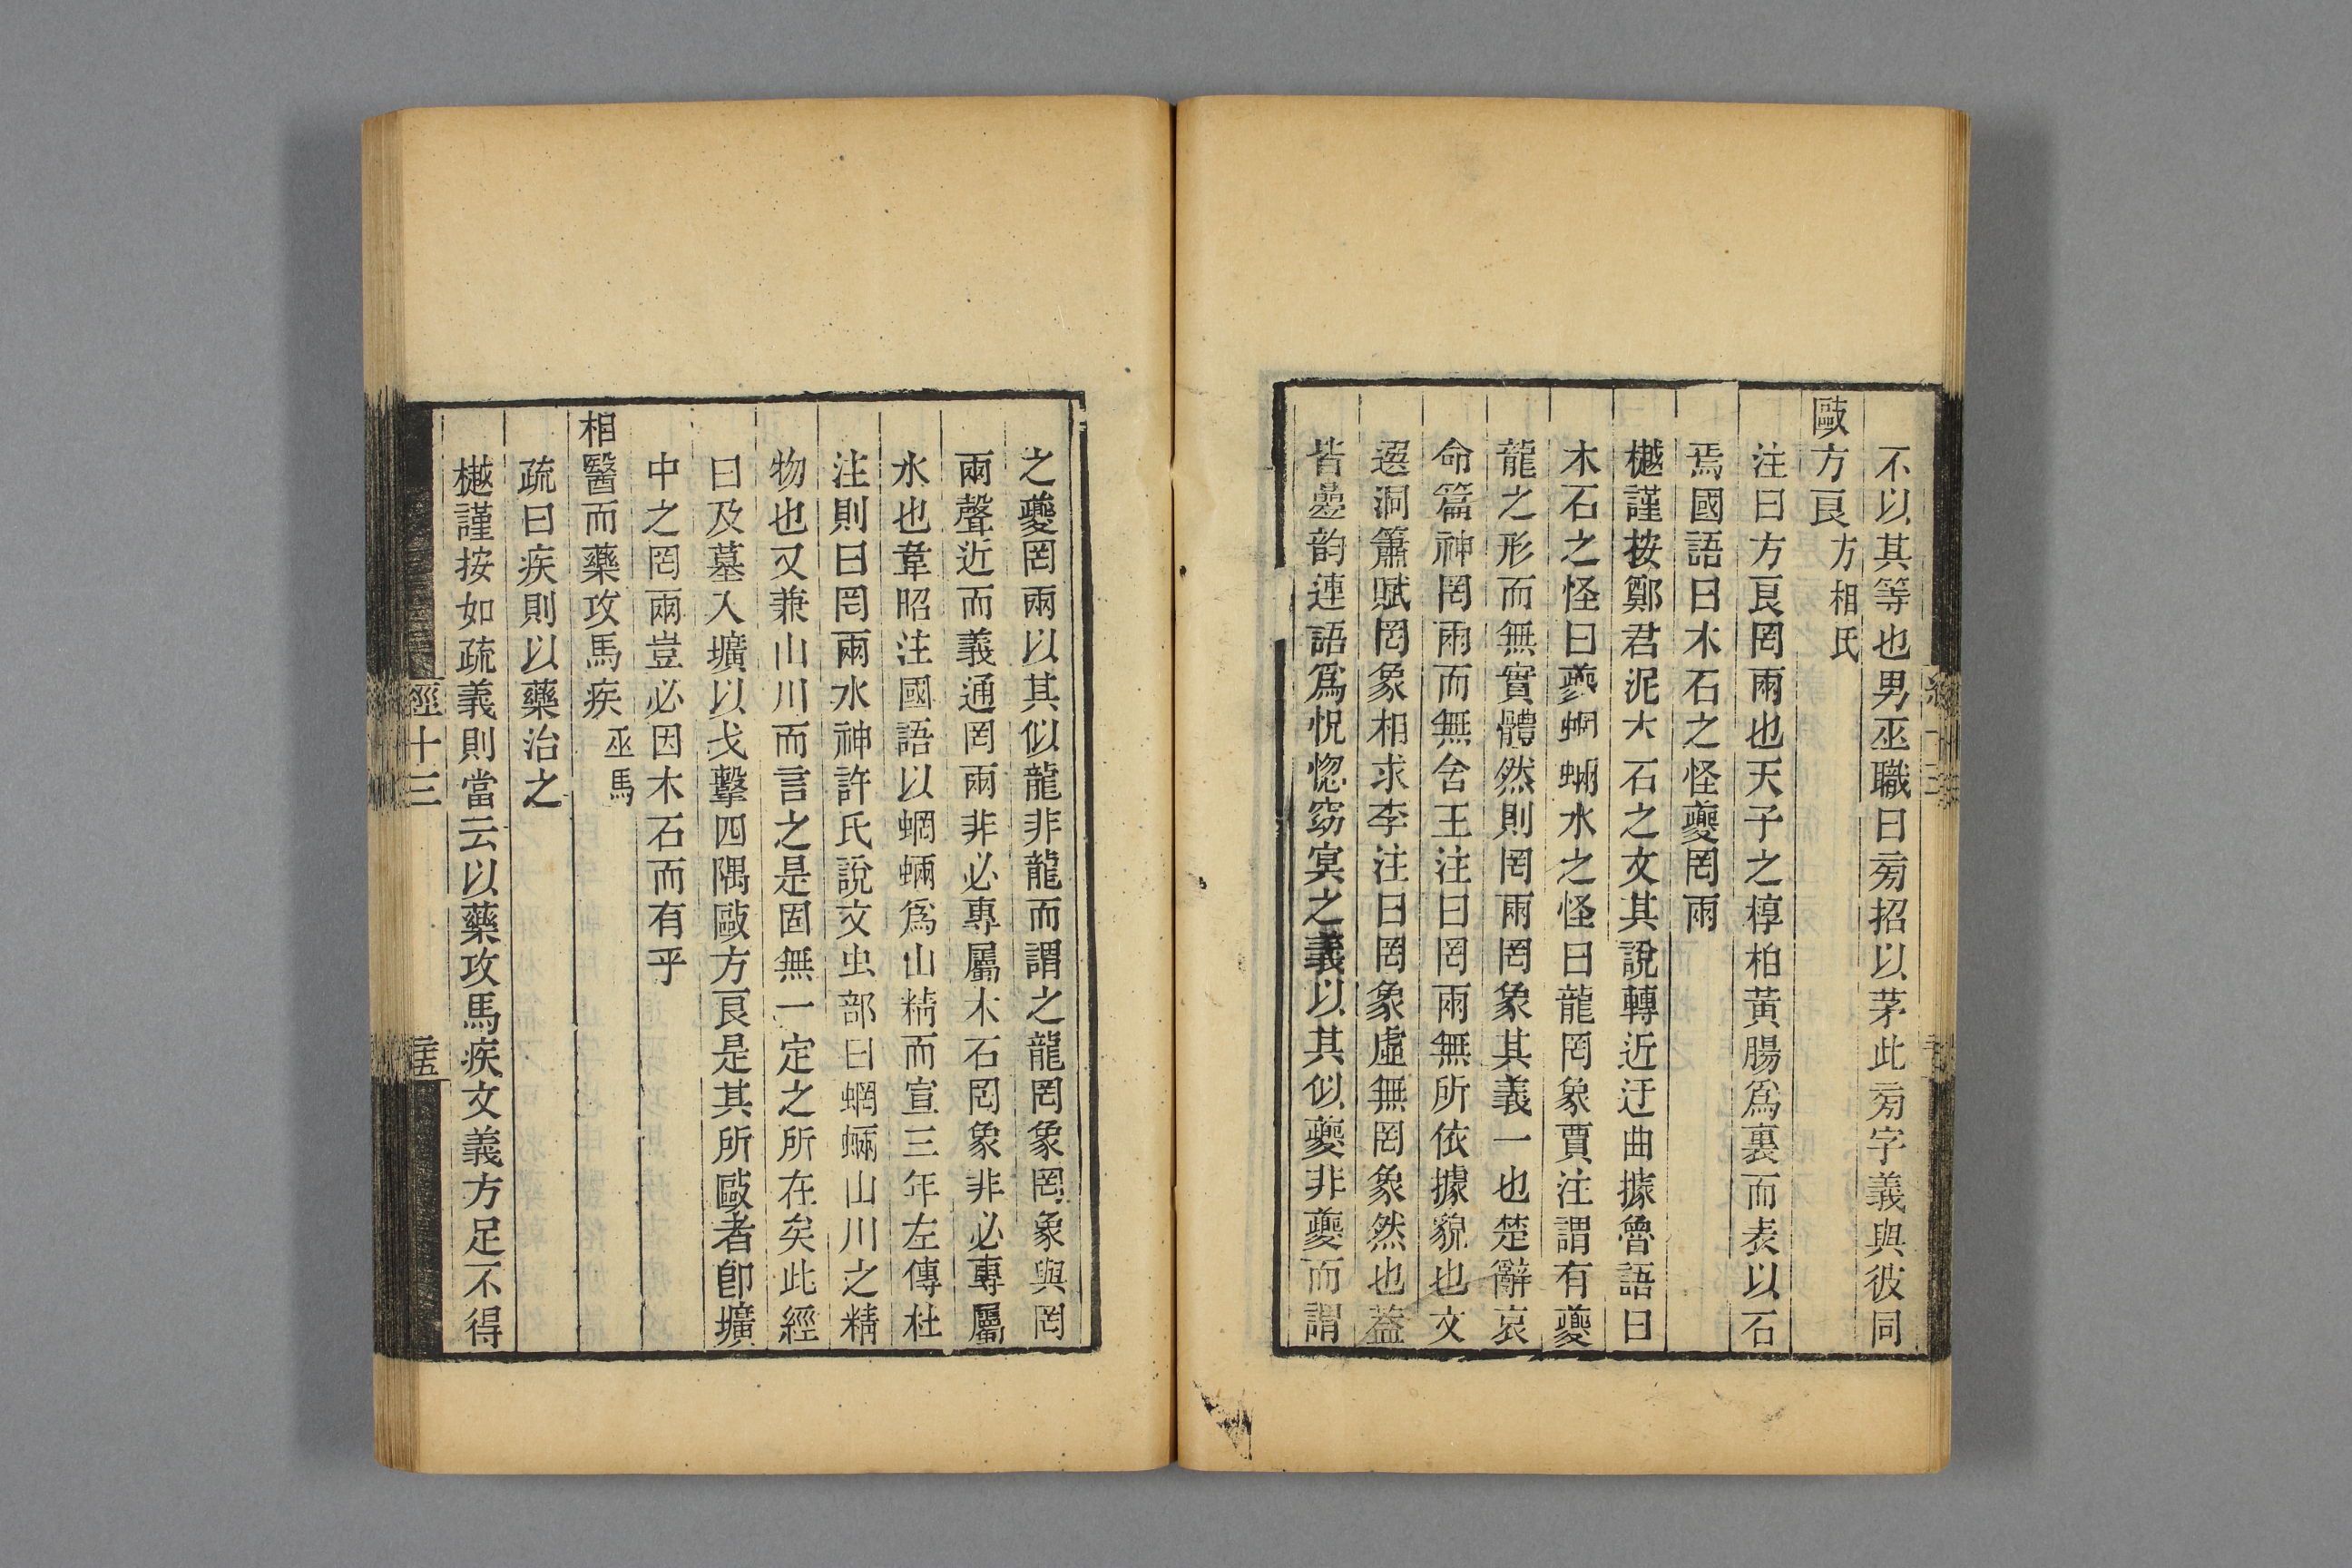 不以其等也男巫職曰旁招以茅此旁字義與彼同
敺方良方相氏
注曰方良罔兩也天子之椁柏黃腸爲裏而表以石
焉國語曰木石之怪夔罔兩
樾謹按鄭君泥木石之文其說轉近迂曲據魯語曰
木石之怪曰夔蝄蜽水之怪曰龍罔象賈注謂有夔
龍之形而無實體然則罔兩罔象其義一也楚辭哀
命篇神罔兩而無舍王注曰罔兩無所依據貌也文
選洞簫賦罔象相求李注曰罔象虛無罔象然也蓋
皆疊韵連語爲怳惚窈冥之義以其似夔非夔而謂
之夔罔兩以其似龍非龍而謂之龍罔象罔象與罔
兩聲近而義通罔兩非必專屬木石罔象非必專屬
水也韋昭注國語以蝄蜽爲山精而宣三年左傳杜
注則曰罔兩水神許氏說文虫部曰蝄蜽山川之精
物也又兼山川而言之是固無一定之所在矣此經
曰及墓入壙以戈擊四隅敺方良是其所敺者卽壙
中之罔兩豈必因木石而有乎
相醫而藥攻馬疾巫馬
疏曰疾則以藥治之
樾謹按如疏義則當云以藥攻馬疾文義方足不得
經十三